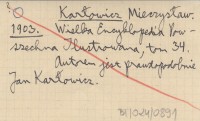 ?
Karłowicz Mieczysław.
1903. Wielka Encyklopedia Pow-
szechna Ilustrowana, tom 34.
Autorem jest prawdopodobnie
Jan Karłowicz.
BI/024/0891